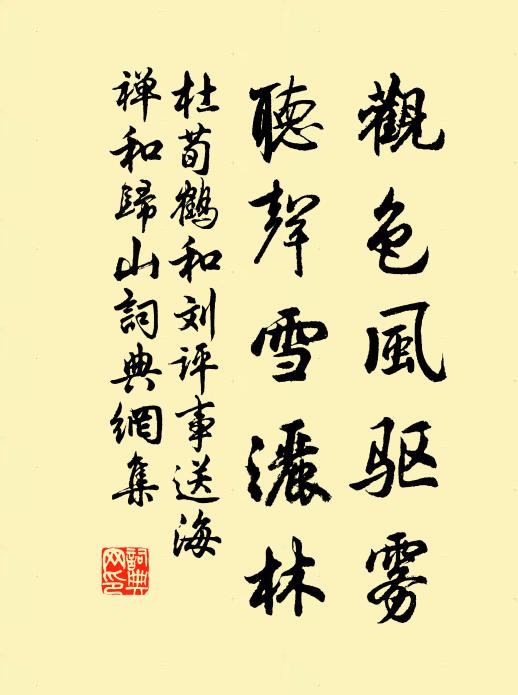 觀色風驱雾
聽聲雪灑林
杜荀鶴和刘评事送海
禅和歸山詞典網集
詞典网印